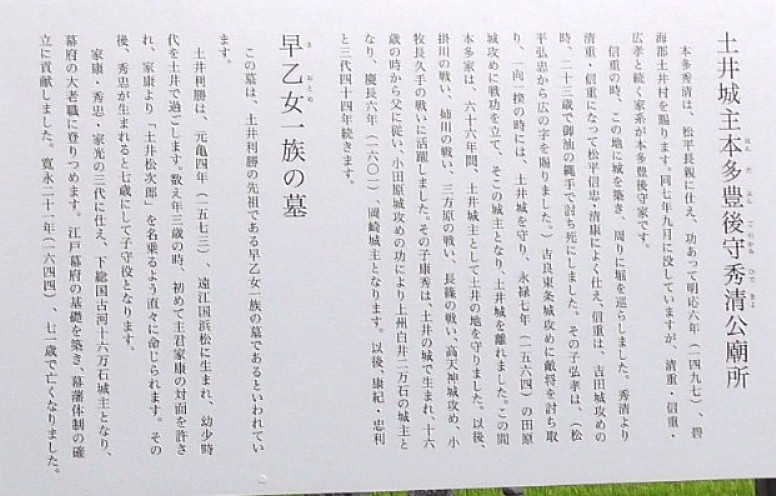 土井城主本多豊後守秀清公廟所
本多秀清は、松平長親に仕え、功あって明応六年（一四九七）、碧
海郡土井村を賜ります。同七年九月に没していますが、清重・信重・
広孝と続く家系が本多豊後守家です。
信重の時、この地に城を築き、周りに堀を巡らしました。秀清より
清重・信重になって松平信忠・清康によく仕え、信重は、吉田城攻めの
時、二十三歳で御油の縄手で討ち死にしました。その子弘孝は、（松
平弘忠から広の字を賜りました。）吉良東条城攻めに敵将を討ち取
り、一向一揆の時には、土井城を守り、永禄七年（一五六四）の田原
城攻めに戦功を立て、そこの城主となり、土井城を離れました。この間
本多家は、六十六年間、土井城主として土井の地を守りました。以後、
掛川の戦い、姉川の戦い、三方原の戦い、長篠の戦い、高天神城攻め、小
牧長久手の戦いに活躍しました。その子康秀は、土井の城で生まれ、十六
歳の時から父に従い、小田原城攻めの功により上州白井二万石の城主と
なり、慶長六年（一六〇一）、岡崎城主となります。以後、康紀・忠利
と三代四十四年続きます。
早乙女一族の墓
この墓は、土井利勝の先祖である早乙女一族の墓であるといわれてい
ます。
土井利勝は、元亀四年（一五七三）、遠江国浜松に生まれ、幼少時
代を土井で過ごします。数え年三歳の時、初めて主君家康の対面を許さ
れ、家康より「土井松次郎」を名乗るよう直々に命じられます。その
後、秀忠が生まれると七歳にして子守役となります。
家康・秀忠・家光の三代に仕え、下総国古河十六万石城主となり、
幕府の大老職に登りつめます。江戸幕府の基礎を築き、幕藩体制の確
立に貢献しました。寛永二十一年（一六四四）、七一歳で亡くなりました。